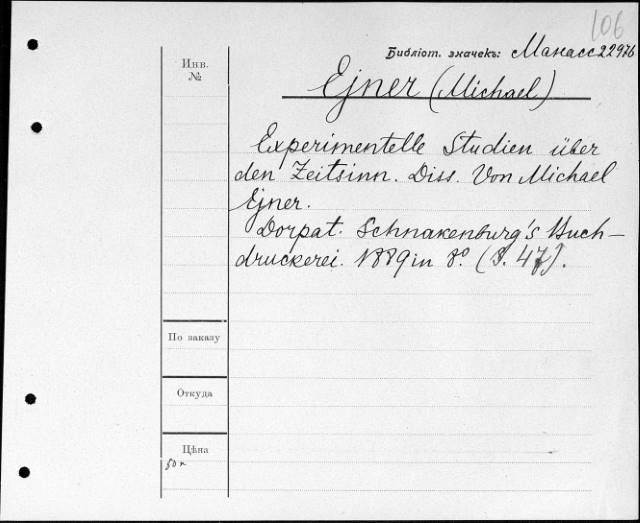 106
Библіот. значекъ: Манасс 22976
Инв.
№
Ejner (Michael)
Experimentelle Studien über
den Zeitsinn. Diss. Von Michael
Ejner.
Dorpat. Schnakenburg's Buch-
druckerei. 1889 in 8º. (S. 47).
По заказу
Откуда
Цѣна
50 к